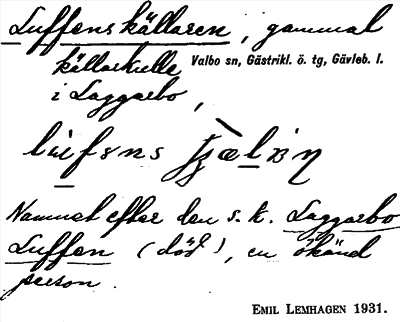 Luffenskällaren, gammal
källarkulle Valbo sn, Gästrikl. ö. tg, Gävleb. l.
i Laggarbo,
Namnet efter den s. k. Laggarbo
Luffen (död), en ökänd
person.
EMIL LEMHAGEN 1931.